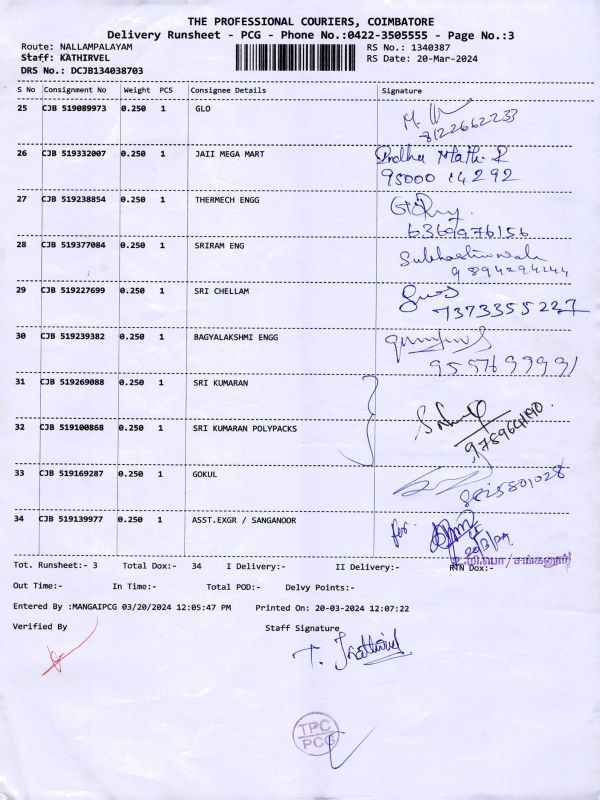 THE PROFESSIONAL COURIERS, COIMBATORE
Delivery Runsheet - PCG - Phone No.:0422-3505555 - Page No.:3
Route: NALLAMPALAYAM RS No.: 1340387
Staff: KATHIRVEL RS Date: 20-Mar-2024
DRS No.: DCJB134038703
S No Consignment No Weight PCS Consignee Details Signature
25 CJB 519089973 0.250 1 GLO
8122662233
26 CJB 519332007 0.250 1 JAII MEGA MART
95000 14292
27 CJB 519238854 0.250 1 THERMECH ENGG
6369976156
28 CJB 519377084 0.250 1 SRIRAM ENG
9894294244
29 CJB 519227699 0.250 1 SRI CHELLAM
7373355227
30 CJB 519239382 0.250 1 BAGYALAKSHMI ENGG
9597699991
31 CJB 519269088 0.250 1 SRI KUMARAN
32 CJB 519100868 0.250 1 SRI KUMARAN POLYPACKS
33 CJB 519169287 0.250 1 GOKUL
34 CJB 519139977 0.250 1 ASST.EXGR / SANGANOOR
for
Tot. Runsheet:- 3 Total Dox:- 34 I Delivery:- II Delivery:- RTN Dox:-
Out Time:- In Time:- Total POD:- Delvy Points:-
Entered By :MANGAIPCG 03/20/2024 12:05:47 PM Printed On: 20-03-2024 12:07:22
Verified By Staff Signature
T. Kathirvel
TPC
PCG